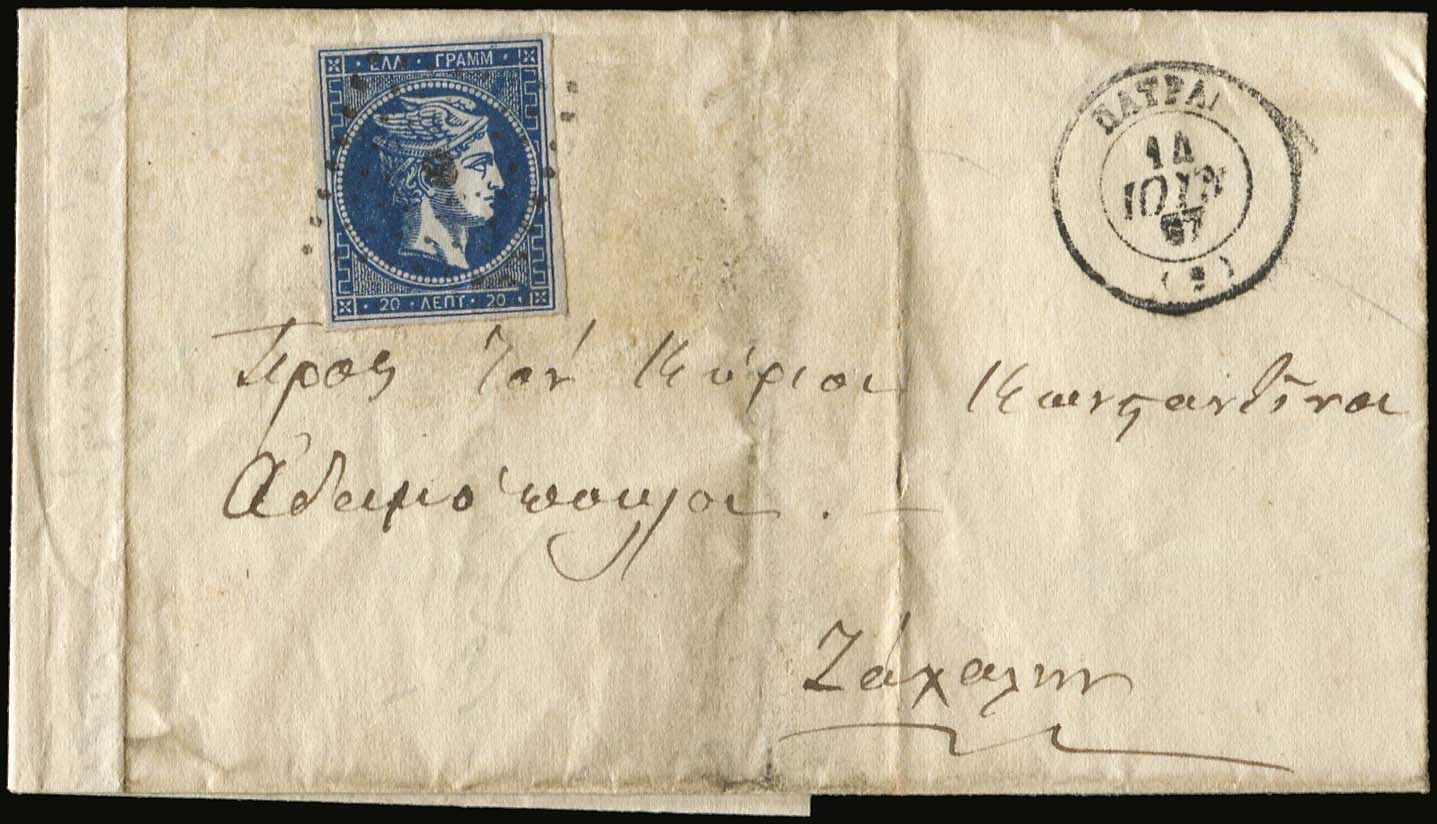 ΕΛΛ · ΓΡΑΜΜ
20 · ΛΕΠΤ · 20
ΠΑΤΡΑΙ
14
ΙΟΥΝ
67
(2)
Προς τον Κύριον Κωνςαντῖνον
Αδαμόπουλον.
Ζάχαλην